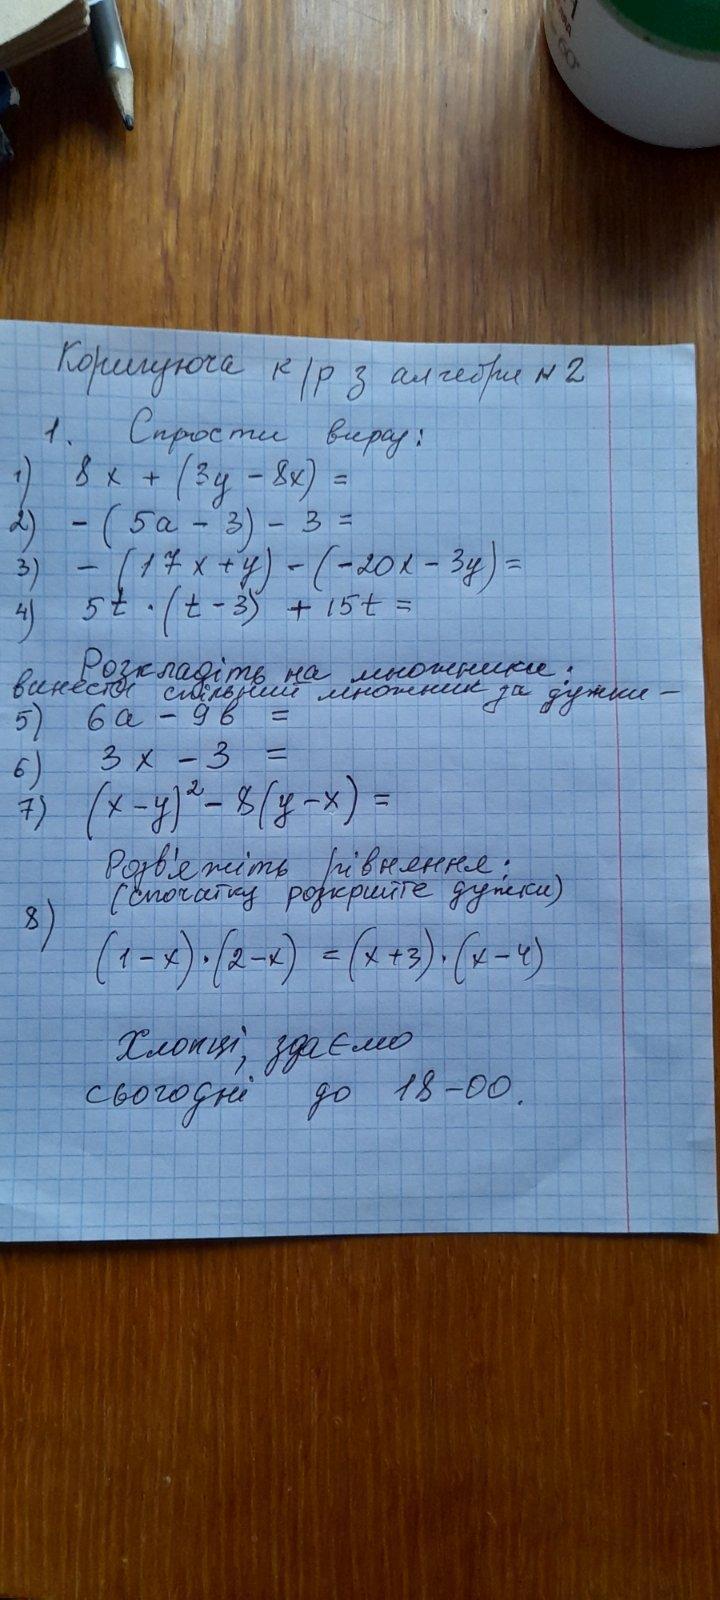 60°
Коригуюча к/р з алгебри №2
1. Спрости вираз:
1) 8x + (3y - 8x) =
2) - (5a - 3) - 3 =
3) - (17x + y) - (-20x - 3y) =
4) 5t · (t - 3) + 15t =
Розкладіть на множники:
винести спільний множник за дужки -
5) 6a - 9b =
6) 3x - 3 =
7) (x - y)² - 8(y - x) =
Розв'яжіть рівняння:
(спочатку розкрийте дужки)
8)
(1 - x) · (2 - x) = (x + 3) · (x - 4)
Хлопці, здаємо
сьогодні до 18-00.